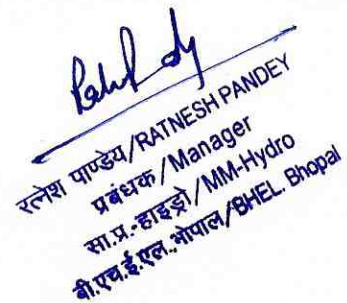 रत्नेश पाण्डेय/RATNESH PANDEY
प्रबंधक/Manager
सा.प्र.-हाइड्रो/MM-Hydro
बी.एच.ई.एल.,भोपाल/BHEL. Bhopal